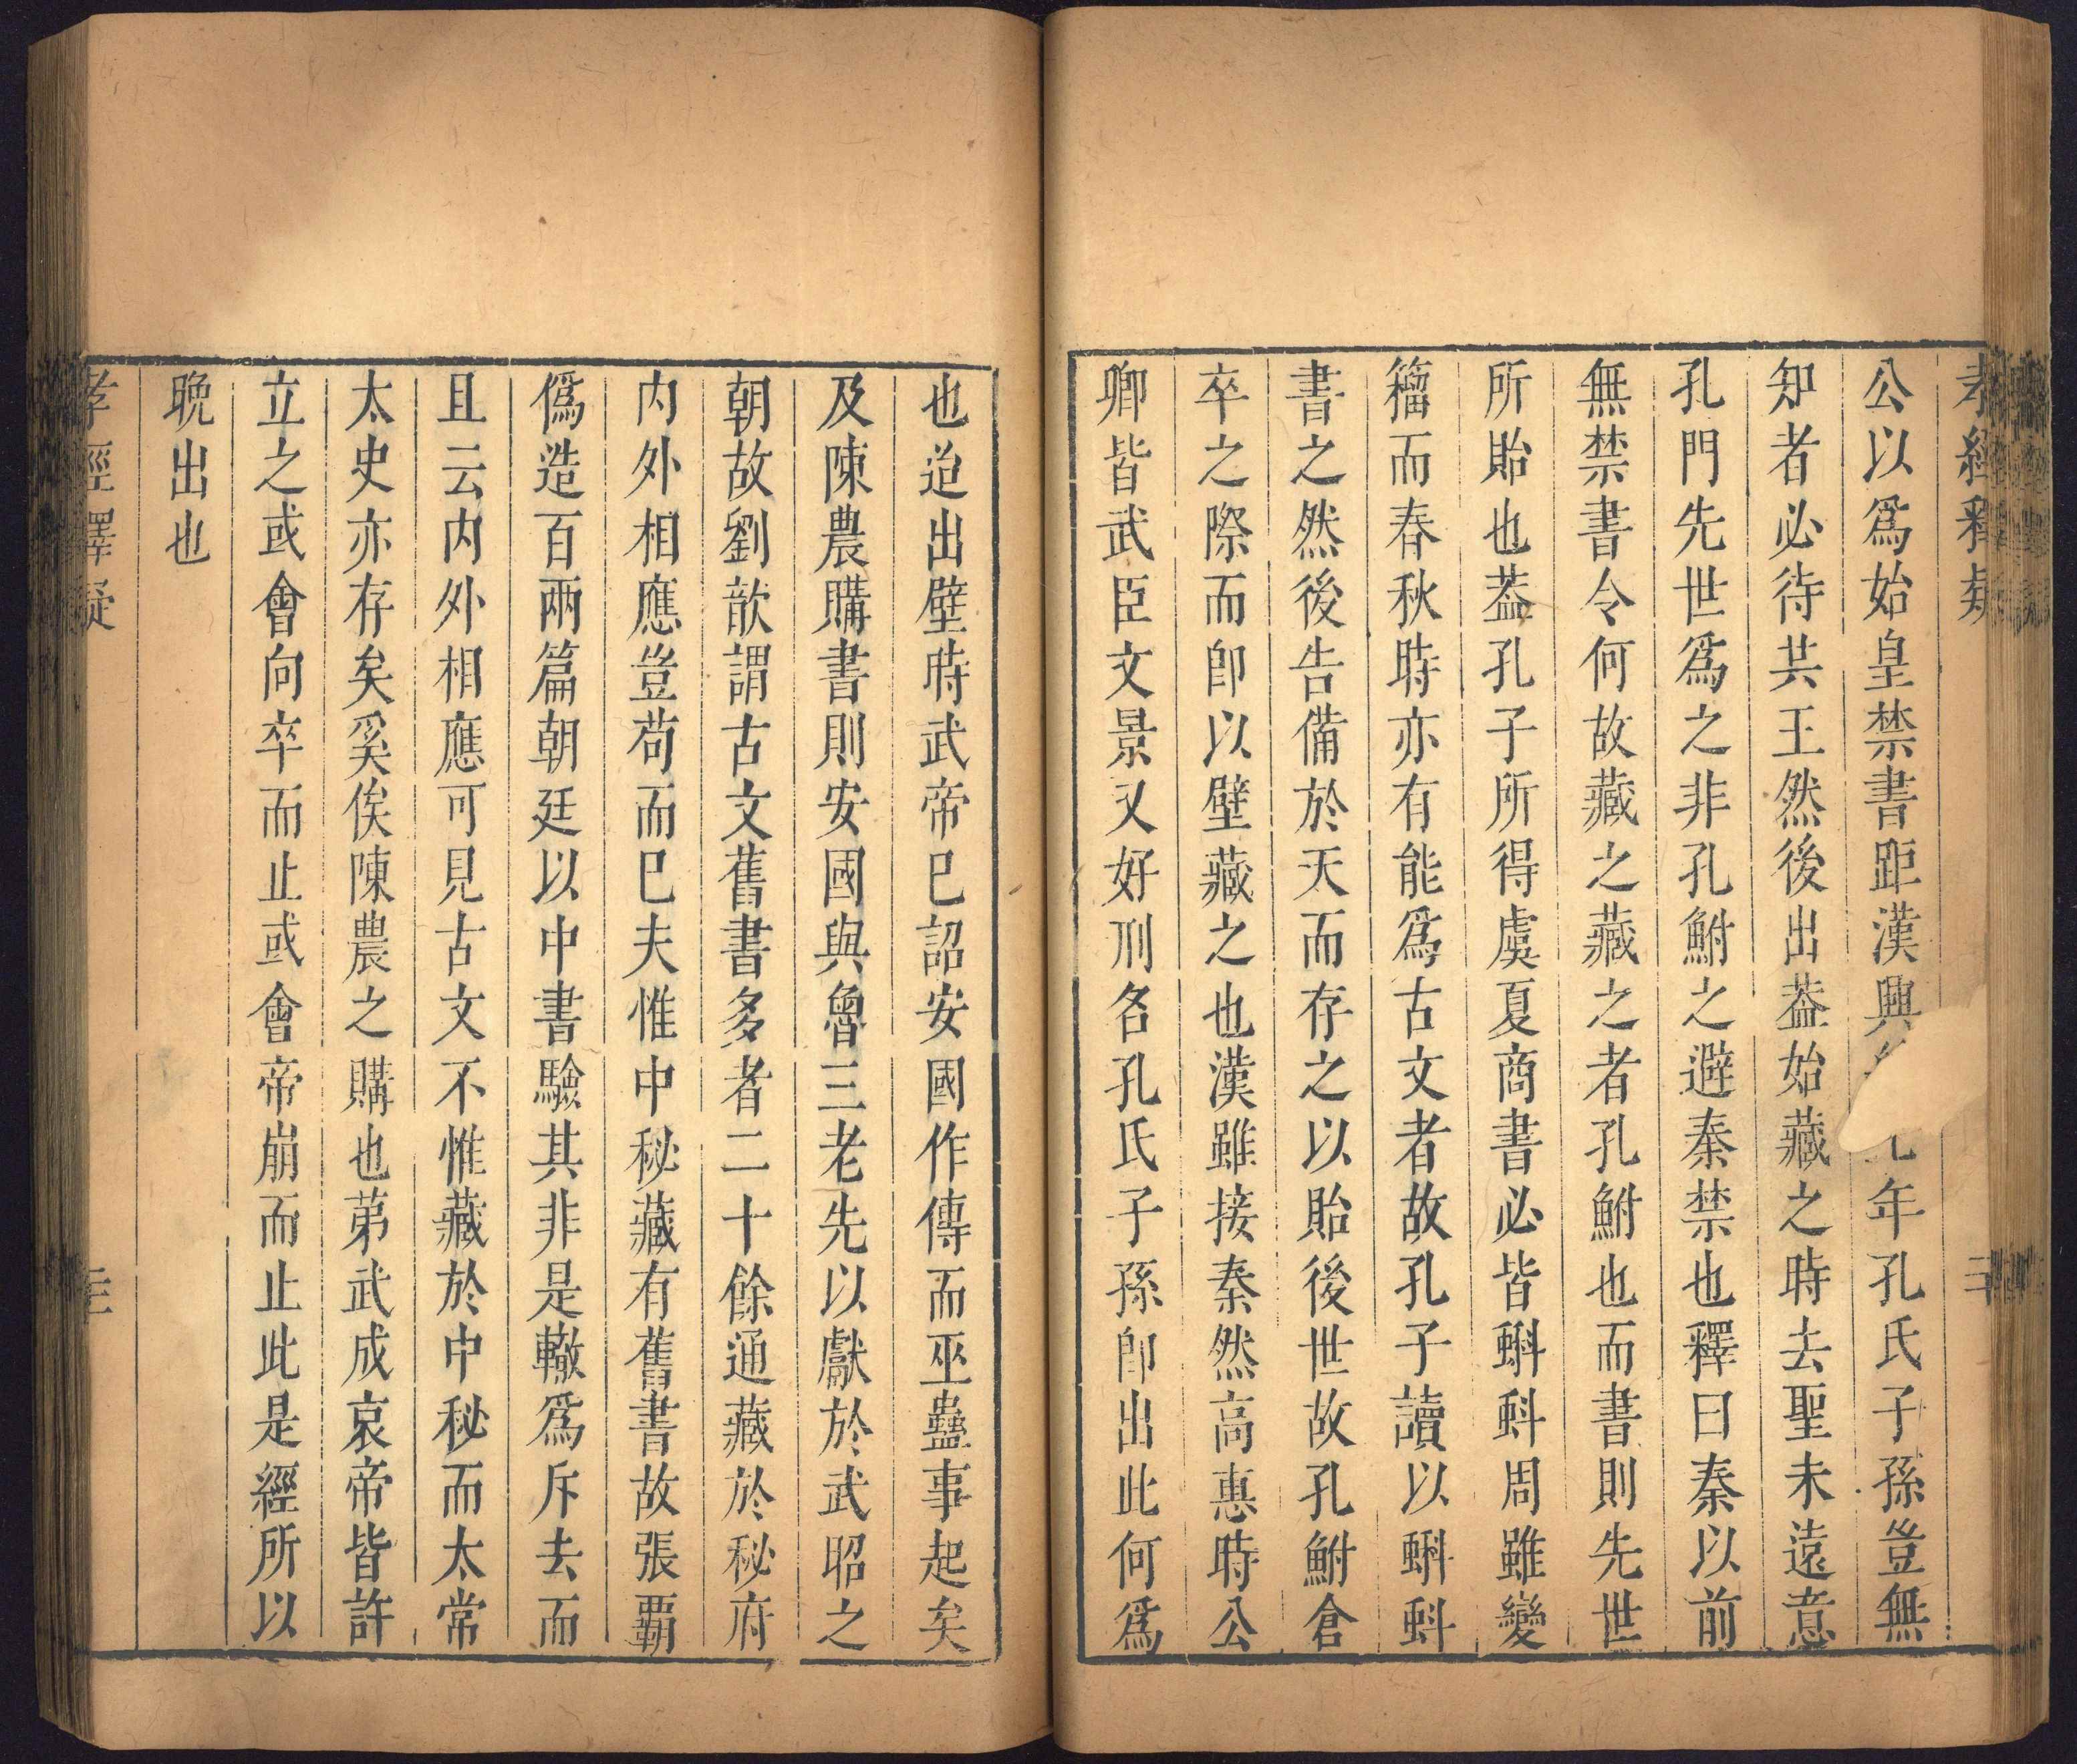 公以爲始皇禁書距漢興年孔氏子孫豈無
知者必待共王然後出葢始藏之時去聖未遠意
孔門先世爲之非孔鮒之避秦禁也釋曰秦以前
無禁書令何故藏之藏之者孔鮒也而書則先世
所貽也葢孔子所得虞夏商書必皆蝌蚪周雖變
籀而春秋時亦有能爲古文者故孔子讀以蝌蚪
書之然後告備於天而存之以貽後世故孔鮒倉
卒之際而卽以壁藏之也漢雖接秦然高惠時公
卿皆武臣文景又好刑名孔氏子孫卽出此何爲
也迨出壁時武帝巳詔安國作傳而巫蠱事起矣
及陳農購書則安國與魯三老先以獻於武昭之
朝故劉歆謂古文舊書多者二十餘通藏於秘府
内外相應豈苟而巳夫惟中秘藏有舊書故張霸
僞造百兩篇朝廷以中書驗其非是轍爲斥去而
且云内外相應可見古文不惟藏於中秘而太常
太史亦存矣奚俟陳農之購也苐武成哀帝皆許
立之或會向卒而止或會帝崩而止此是經所以
晩出也
孝經釋疑